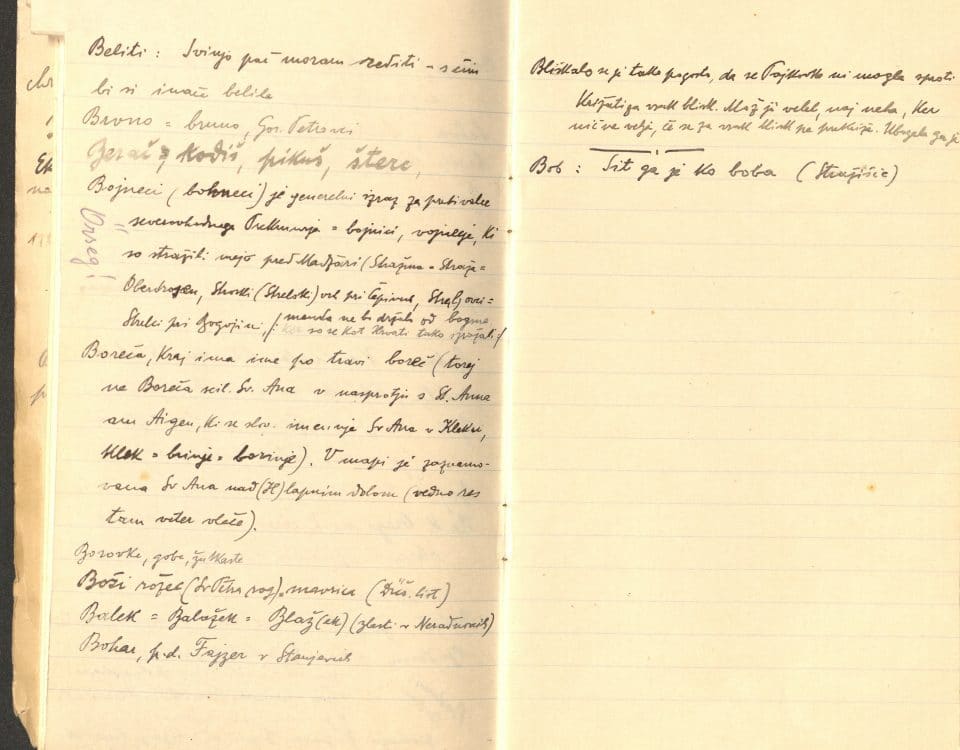 Beliti: Svinjo pač moram rediti – s čim
bi si inače belila
Bruno = bruno, Gor. Petrovci
Berač, kodiš, pikuš, šterc,
Bojneci (bohneci) je generelni izraz za prebivalce
Örseg!
severovzhodnega Prekmurja = bojnici, vojneje, ki
so stražili mejo pred Madžari (Stražna = Straža =
, Strelci (Strelski) vrh pri Čepincih, Streljovci =
Strelci pri Bogojini, /: menda ne bi držalo od bogme
ker so se kot Hrvati tako :/
Boreča, kraj ima ime po travi boreč (torej
ne Boreča scil. Sv. Ana v nasprotju s St. Anna
am Aigen, ki se slov. imenuje Sv Ana v Kleku,
Klek = brinje = borinje). V mapi je zaznamo-
vana Sv Ana nad (H)lapnim dolom (vedno res
tam veter vleče).
Borovke, gobe, žutkaste
Boži rožec (Sv Petra rog) = mavrica (Duš. list)
Balek = Balažek = Blaž(ek) (zlasti v Neradnovcih)
Bohar, p.d. Fajzer v Stanjevcih
Bliskalo se je tako pogosto, da se Fajkovka ni mogla sproti
križati za vsak blisk. Mož je velel, naj neha, ker
nič ne velja, če se za vsak blisk ne prekriža. Ubogala ga je
Bob: Sit ga je ko boba (Stražišče)